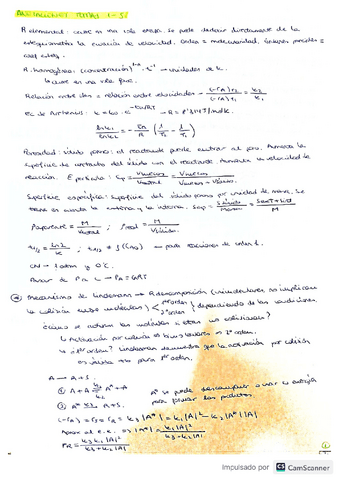 R elemental: ocurre en una sola etapa. Se puede deducir directamente de la
estequiometría la ecuación de velocidad. Orden = molecularidad.
R. homogénea: (concentración)¹⁻ⁿ · t⁻¹ → unidades de k.
Ocurre en una sola fase.
Relación entre = relación entre velocidades → (-rA)T2 / (-rA)T1 = k2 / k1
Ec de Arrhenius: k = ko · e^-Ea/RT → R = 8'314 J/mol K
ln k1 / ln k2 = - Ea / R (1/T2 - 1/T1)
Porosidad: sólido poroso: el reactante puede entrar al poro. Aumenta la
superficie de contacto del sólido con el reactante. Aumenta la velocidad de
reacción. E partícula: Ep = Vhuecos / Vtotal = Vhuecos / Vhuecos + Vsólido
Superficie específica: superficie del sólido poroso por unidad de masa. Se
tiene en cuenta la externa y la interna. Sesp = S sólido / Masa = Sext + Sint / M
ρaparente = M / Vtotal ; ρreal = M / Vsólido
t1/2 = ln 2 / k ; t1/2 ≠ f(CAo) → para reacciones de orden 1.
CN → 1 atm y 0°C.
Pasar de P a C → PA = CART
Mecanismo de Lindemann → R descomposición (unimoleculares no implican
la colisión entre moléculas) 1º orden 2º orden dependiendo de las condiciones.
¿Cómo se activan las moléculas si están no colisionadas?
Activación por colisión es bimolecular → 2º orden.
¿1º orden? Lindemann demuestra que la activación por colisión
es válida para 1º orden.
A → R + S
① A + A k1 k2 A* + A
② A* k3 R + S
A* se puede descomponer o usar su energía
para formar los productos.
(-rA) = rR = rS = k3 |A*| = k1 |A|² - k2 |A*| |A|
Aprox al e.e. → |A*| = k1 |A|² / k3 + k2 |A|
rR = k3 k1 |A|² / k3 + k2 |A|
Impulsado por CS CamScanner